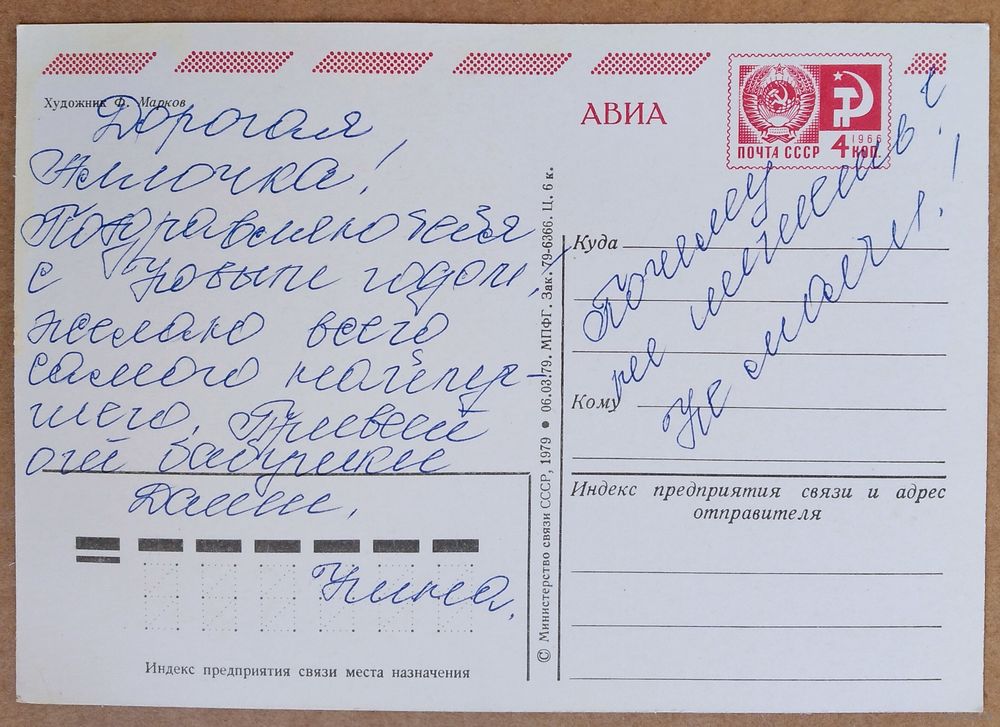 Художник Ф. Марков
Дорогая
Жилочка!
Поздравляю тебя
с Новым годом,
желаю всего
самого найлуч-
шего. Привет
от бабушки
Даши.
Нина.
Индекс предприятия связи места назначения
© Министерство связи СССР, 1979 ● 06.03.79. МПФГ. Зак. 79-6366. Ц. 6 к.
АВИА
ПОЧТА СССР
1966
4 КОП.
Куда
Кому
Почему
не пишешь?
Не молчи!
Индекс предприятия связи и адрес
отправителя